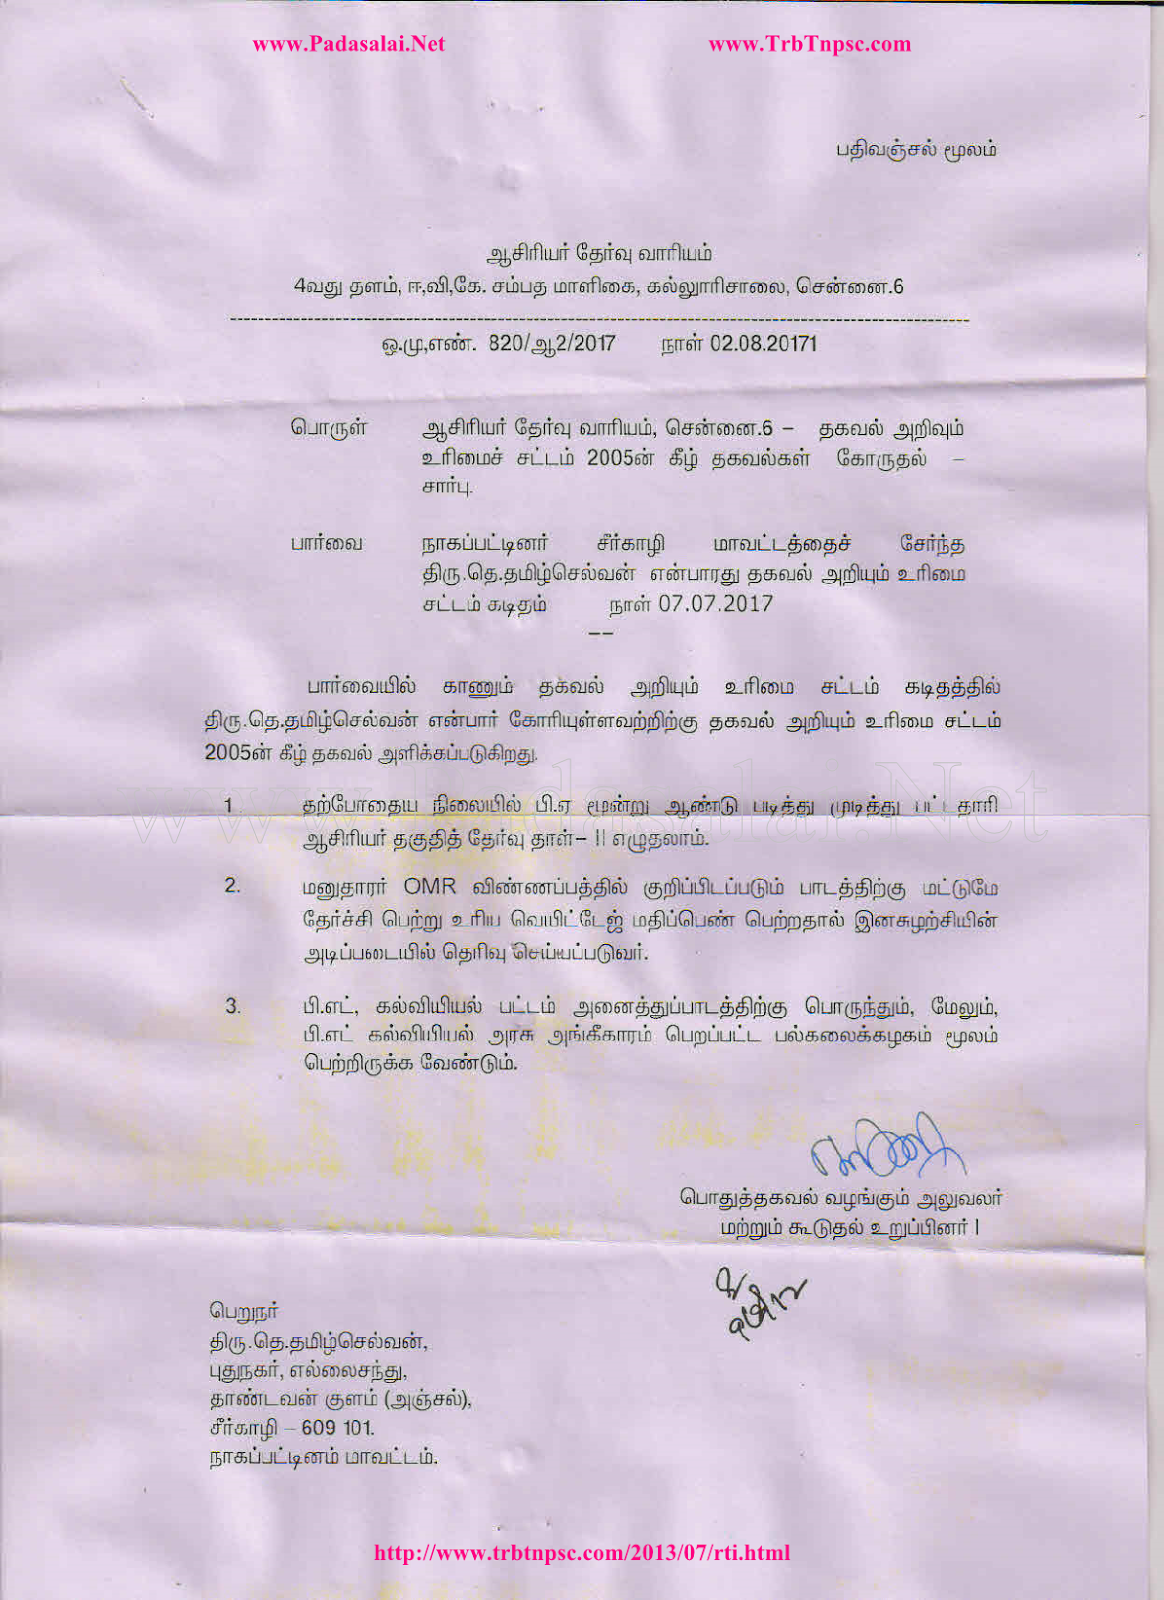 www.Padasalai.Net www.TrbTnpsc.com
பதிவஞ்சல் மூலம்
ஆசிரியர் தேர்வு வாரியம்
4வது தளம், ஈ,வி,கே. சம்பத மாளிகை, கல்லூரிசாலை, சென்னை.6
ஒ.மு,எண். 820/ஆ2/2017 நாள் 02.08.20171
பொருள் ஆசிரியர் தேர்வு வாரியம், சென்னை.6 – தகவல் அறிவும்
உரிமைச் சட்டம் 2005ன் கீழ் தகவல்கள் கோருதல் –
சார்பு.
பார்வை நாகப்பட்டினர் சீர்காழி மாவட்டத்தைச் சேர்ந்த
திரு.தெ.தமிழ்செல்வன் என்பாரது தகவல் அறியும் உரிமை
சட்டம் கடிதம் நாள் 07.07.2017
--
பார்வையில் காணும் தகவல் அறியும் உரிமை சட்டம் கடிதத்தில்
திரு.தெ.தமிழ்செல்வன் என்பார் கோரியுள்ளவற்றிற்கு தகவல் அறியும் உரிமை சட்டம்
2005ன் கீழ் தகவல் அளிக்கப்படுகிறது.
1. தற்போதைய நிலையில் பி.ஏ மூன்று ஆண்டு படித்து முடித்து பட்டதாரி
ஆசிரியர் தகுதித் தேர்வு தாள்– II எழுதலாம்.
2. மனுதாரர் OMR விண்ணப்பத்தில் குறிப்பிடப்படும் பாடத்திற்கு மட்டுமே
தேர்ச்சி பெற்று உரிய வெயிட்டேஜ் மதிப்பெண் பெற்றதால் இனசுழற்சியின்
அடிப்படையில் தெரிவு செய்யப்படுவர்.
3. பி.எட், கல்வியியல் பட்டம் அனைத்துப்பாடத்திற்கு பொருந்தும், மேலும்,
பி.எட் கல்வியியல் அரசு அங்கீகாரம் பெறப்பட்ட பல்கலைக்கழகம் மூலம்
பெற்றிருக்க வேண்டும்.
பொதுத்தகவல் வழங்கும் அலுவலர்
மற்றும் கூடுதல் உறுப்பினர் I
பெறுநர்
திரு.தெ.தமிழ்செல்வன்,
புதுநகர், எல்லைசந்து,
தாண்டவன் குளம் (அஞ்சல்),
சீர்காழி – 609 101.
நாகப்பட்டினம் மாவட்டம்.
http://www.trbtnpsc.com/2013/07/rti.html